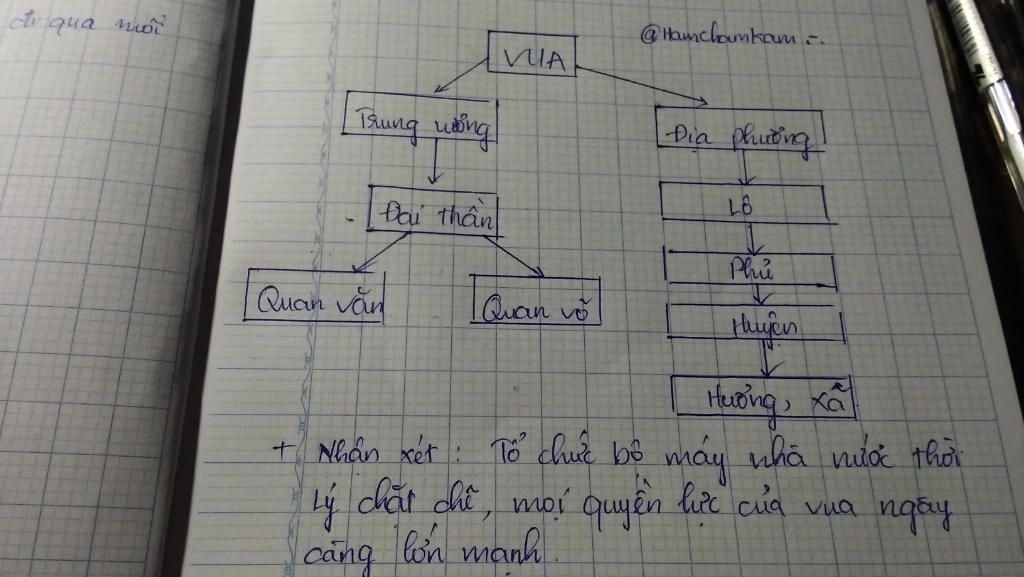 đi qua mỗi
@Hamchamkam
VUA
Trung ương
Địa phương
Đại thần
Lộ
Phủ
Quan văn
Quan võ
Huyện
Hương, xã
+ Nhận xét: Tổ chức bộ máy nhà nước thời
Lý chặt chẽ, mọi quyền lực của vua ngày
càng lớn mạnh.